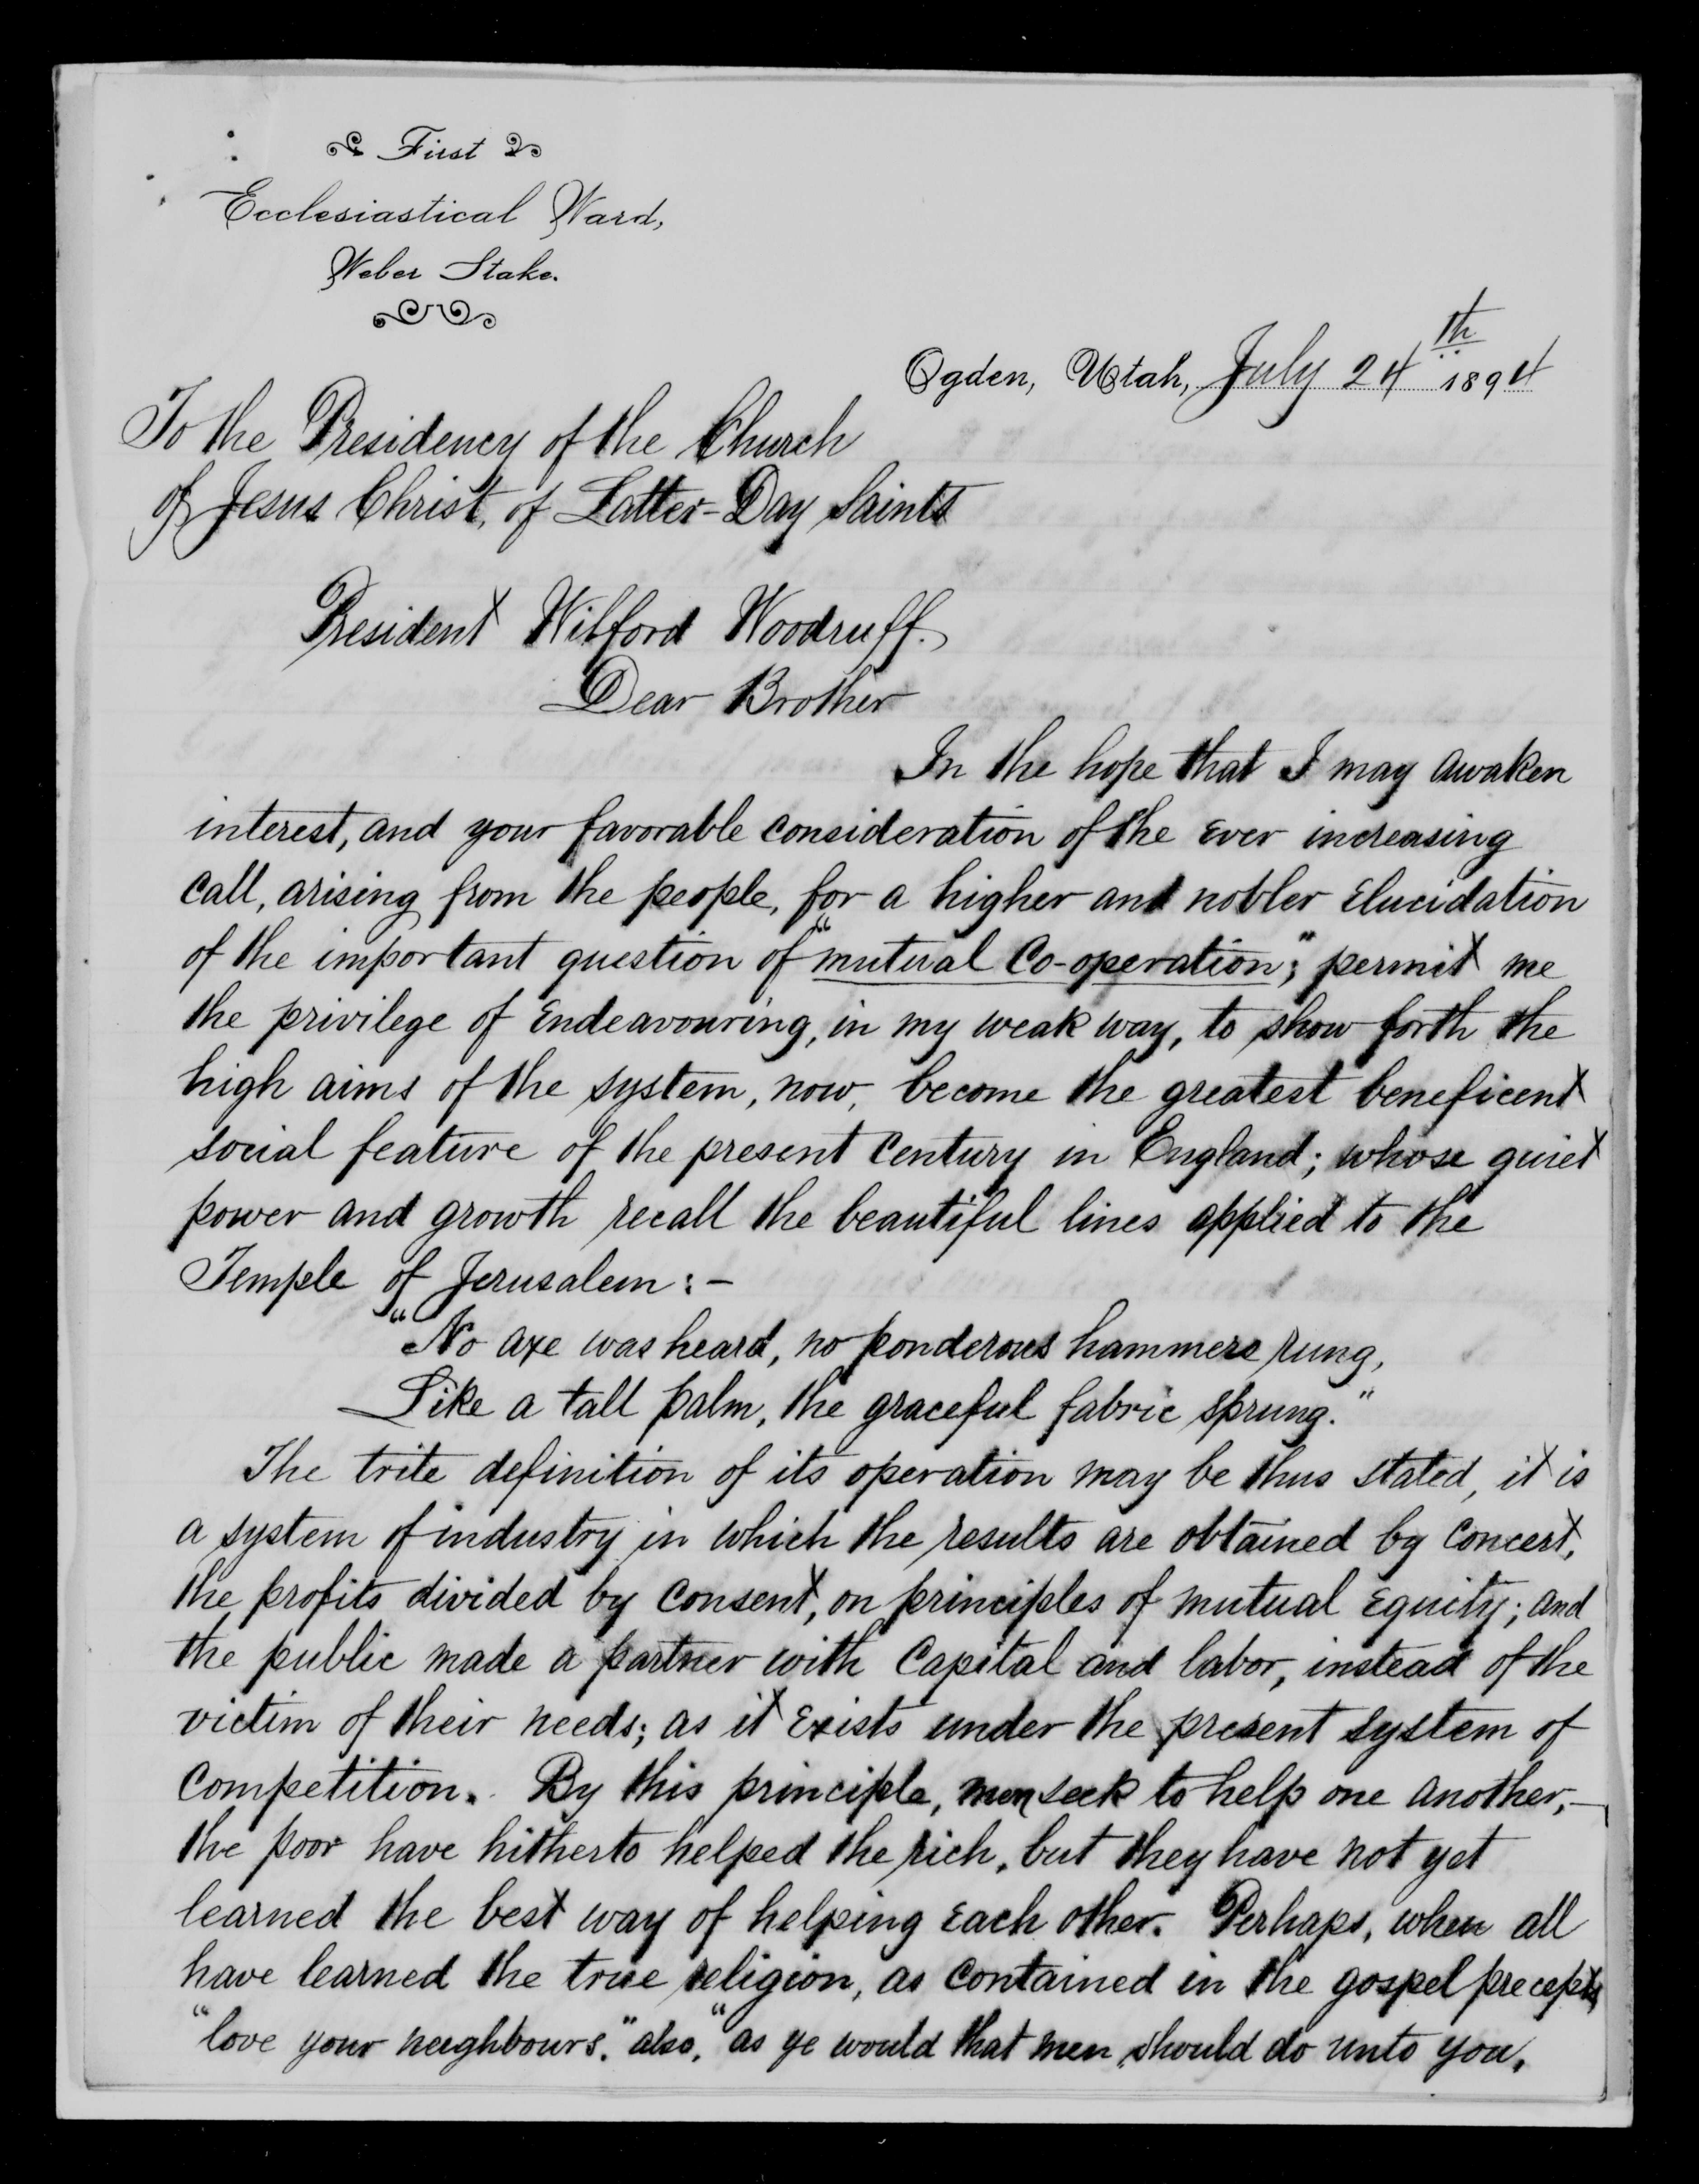 First
Ecclesiastical Ward,
Weber Stake.
Ogden, Utah, July 24th 1894
To the Presidency of the Church
of Jesus Christ, of Latter-Day Saints
President Wilford Woodruff.
Dear Brother
In the hope that I may awaken
interest, and your favorable consideration of the ever increasing
call, arising from the people, for a higher and nobler elucidation
of the important question of "mutual Co-operation;" permit me
the privilege of endeavouring, in my weak way, to show forth the
high aims of the system, now, become the greatest beneficent
social feature of the present century in England; whose quiet
power and growth recall the beautiful lines applied to the
Temple of Jerusalem:-
"No axe was heard, no ponderous hammers rung,
Like a tall palm, the graceful fabric sprung."
The trite definition of its operation may be thus stated, it is
a system of industry in which the results are obtained by concert,
the profits divided by consent, on principles of mutual equity; and
the public made a partner with Capital and labor, instead of the
victim of their needs; as it exists under the present system of
Competition. By this principle, men seek to help one another,-
the poor have hitherto helped the rich, but they have not yet
learned the best way of helping each other. Perhaps, when all
have learned the true religion, as contained in the gospel precepts
"love your neighbours." also, "as ye would that men should do unto you,